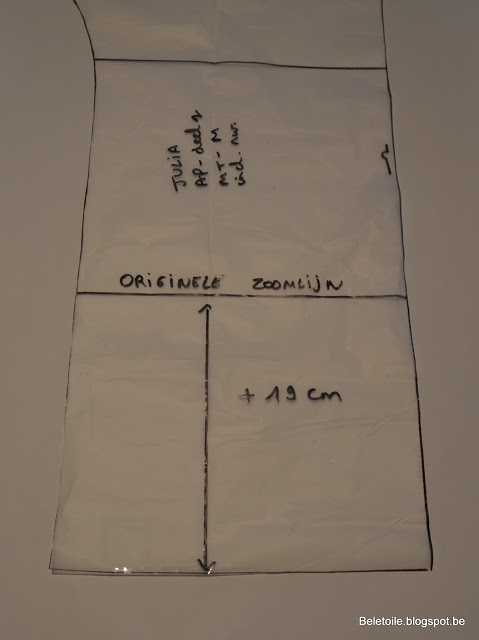 JULIA
AP-deel 2
MT-M
incl. nw.
ORIGINELE ZOOMLIJN
+ 19 cm
Beletoile.blogspot.be